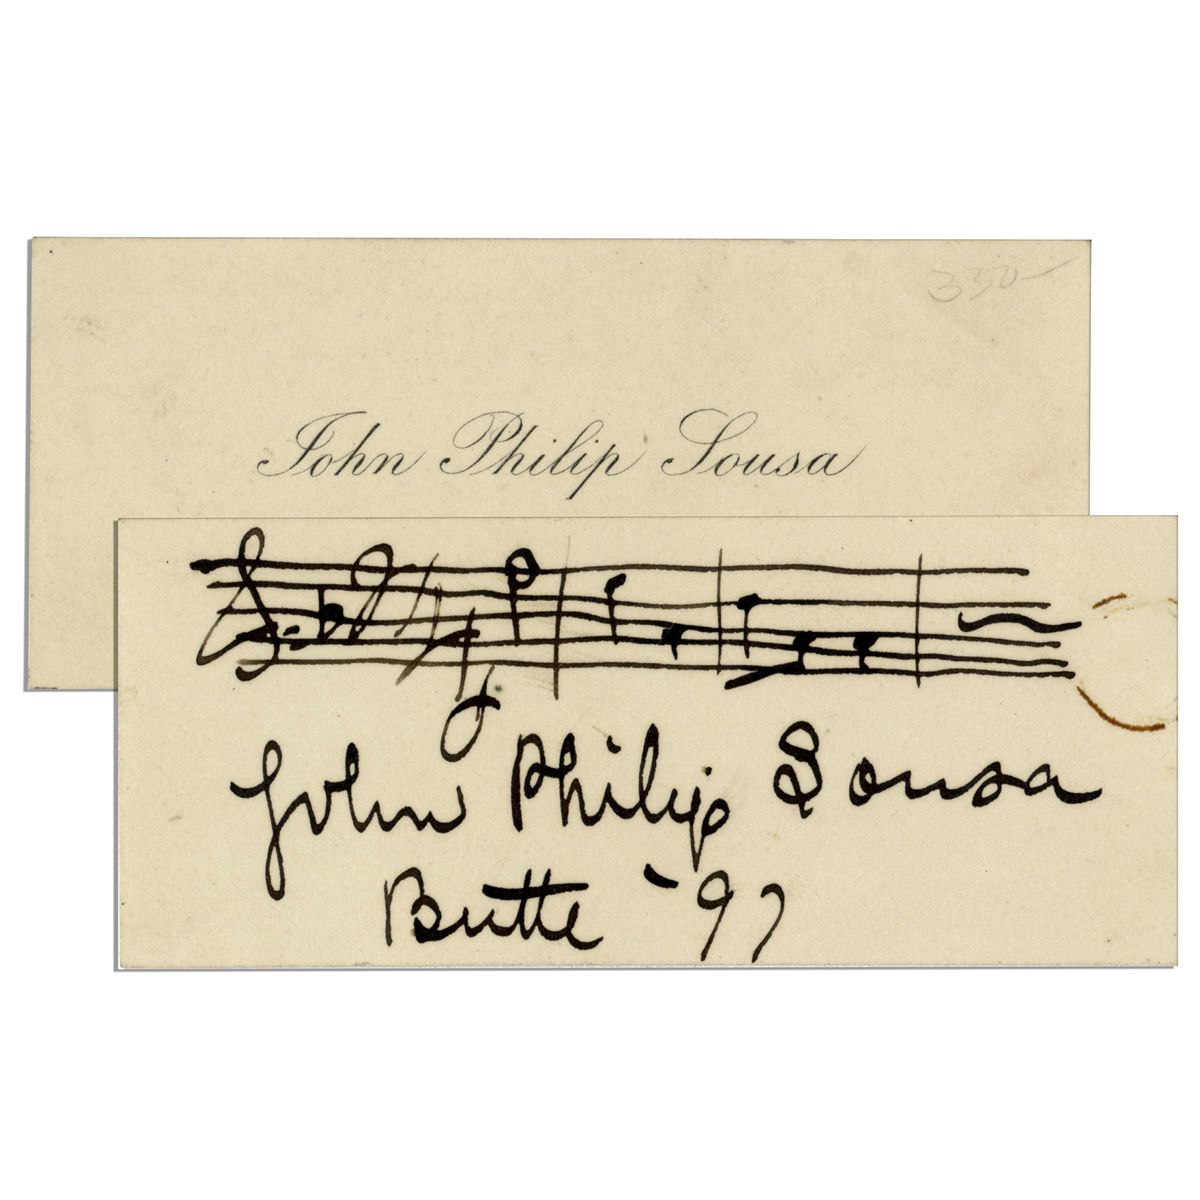 350-
John Philip Sousa
John Philip Sousa
Butte '97